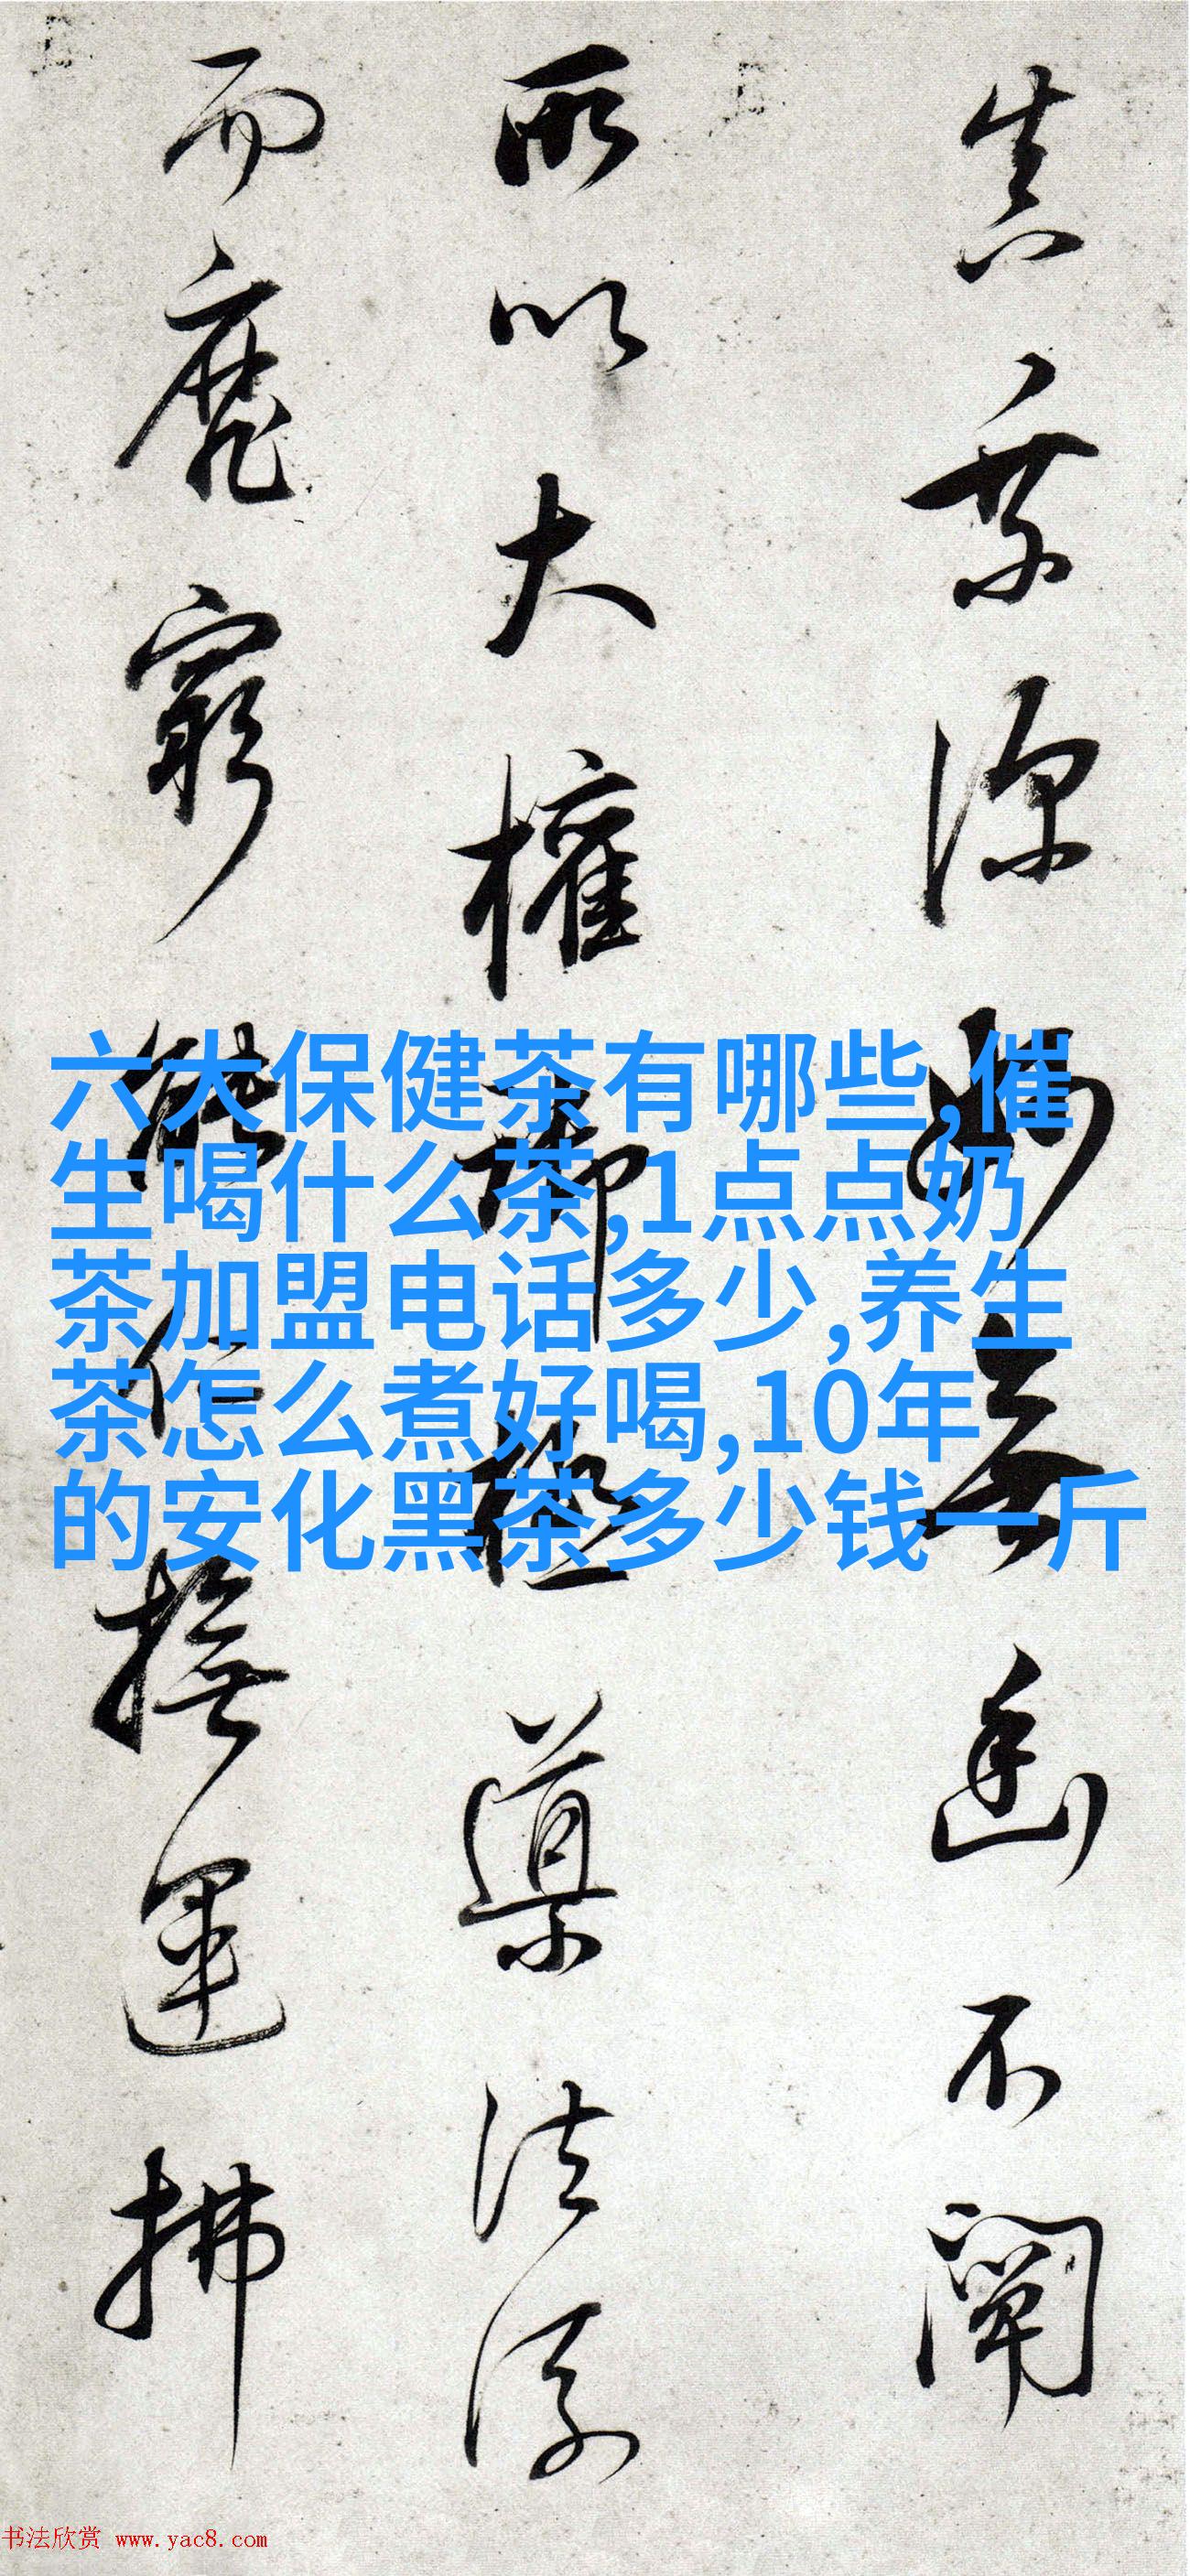 真深妙無幽不闡
所以大權御極導法流
而靡窮能仁撫運拂
六大保健茶有哪些,催
生喝什么茶,1点点奶
茶加盟电话多少,养生
茶怎么煮好喝,10年
的安化黑茶多少钱一斤
书法欣赏 www.yac8.com